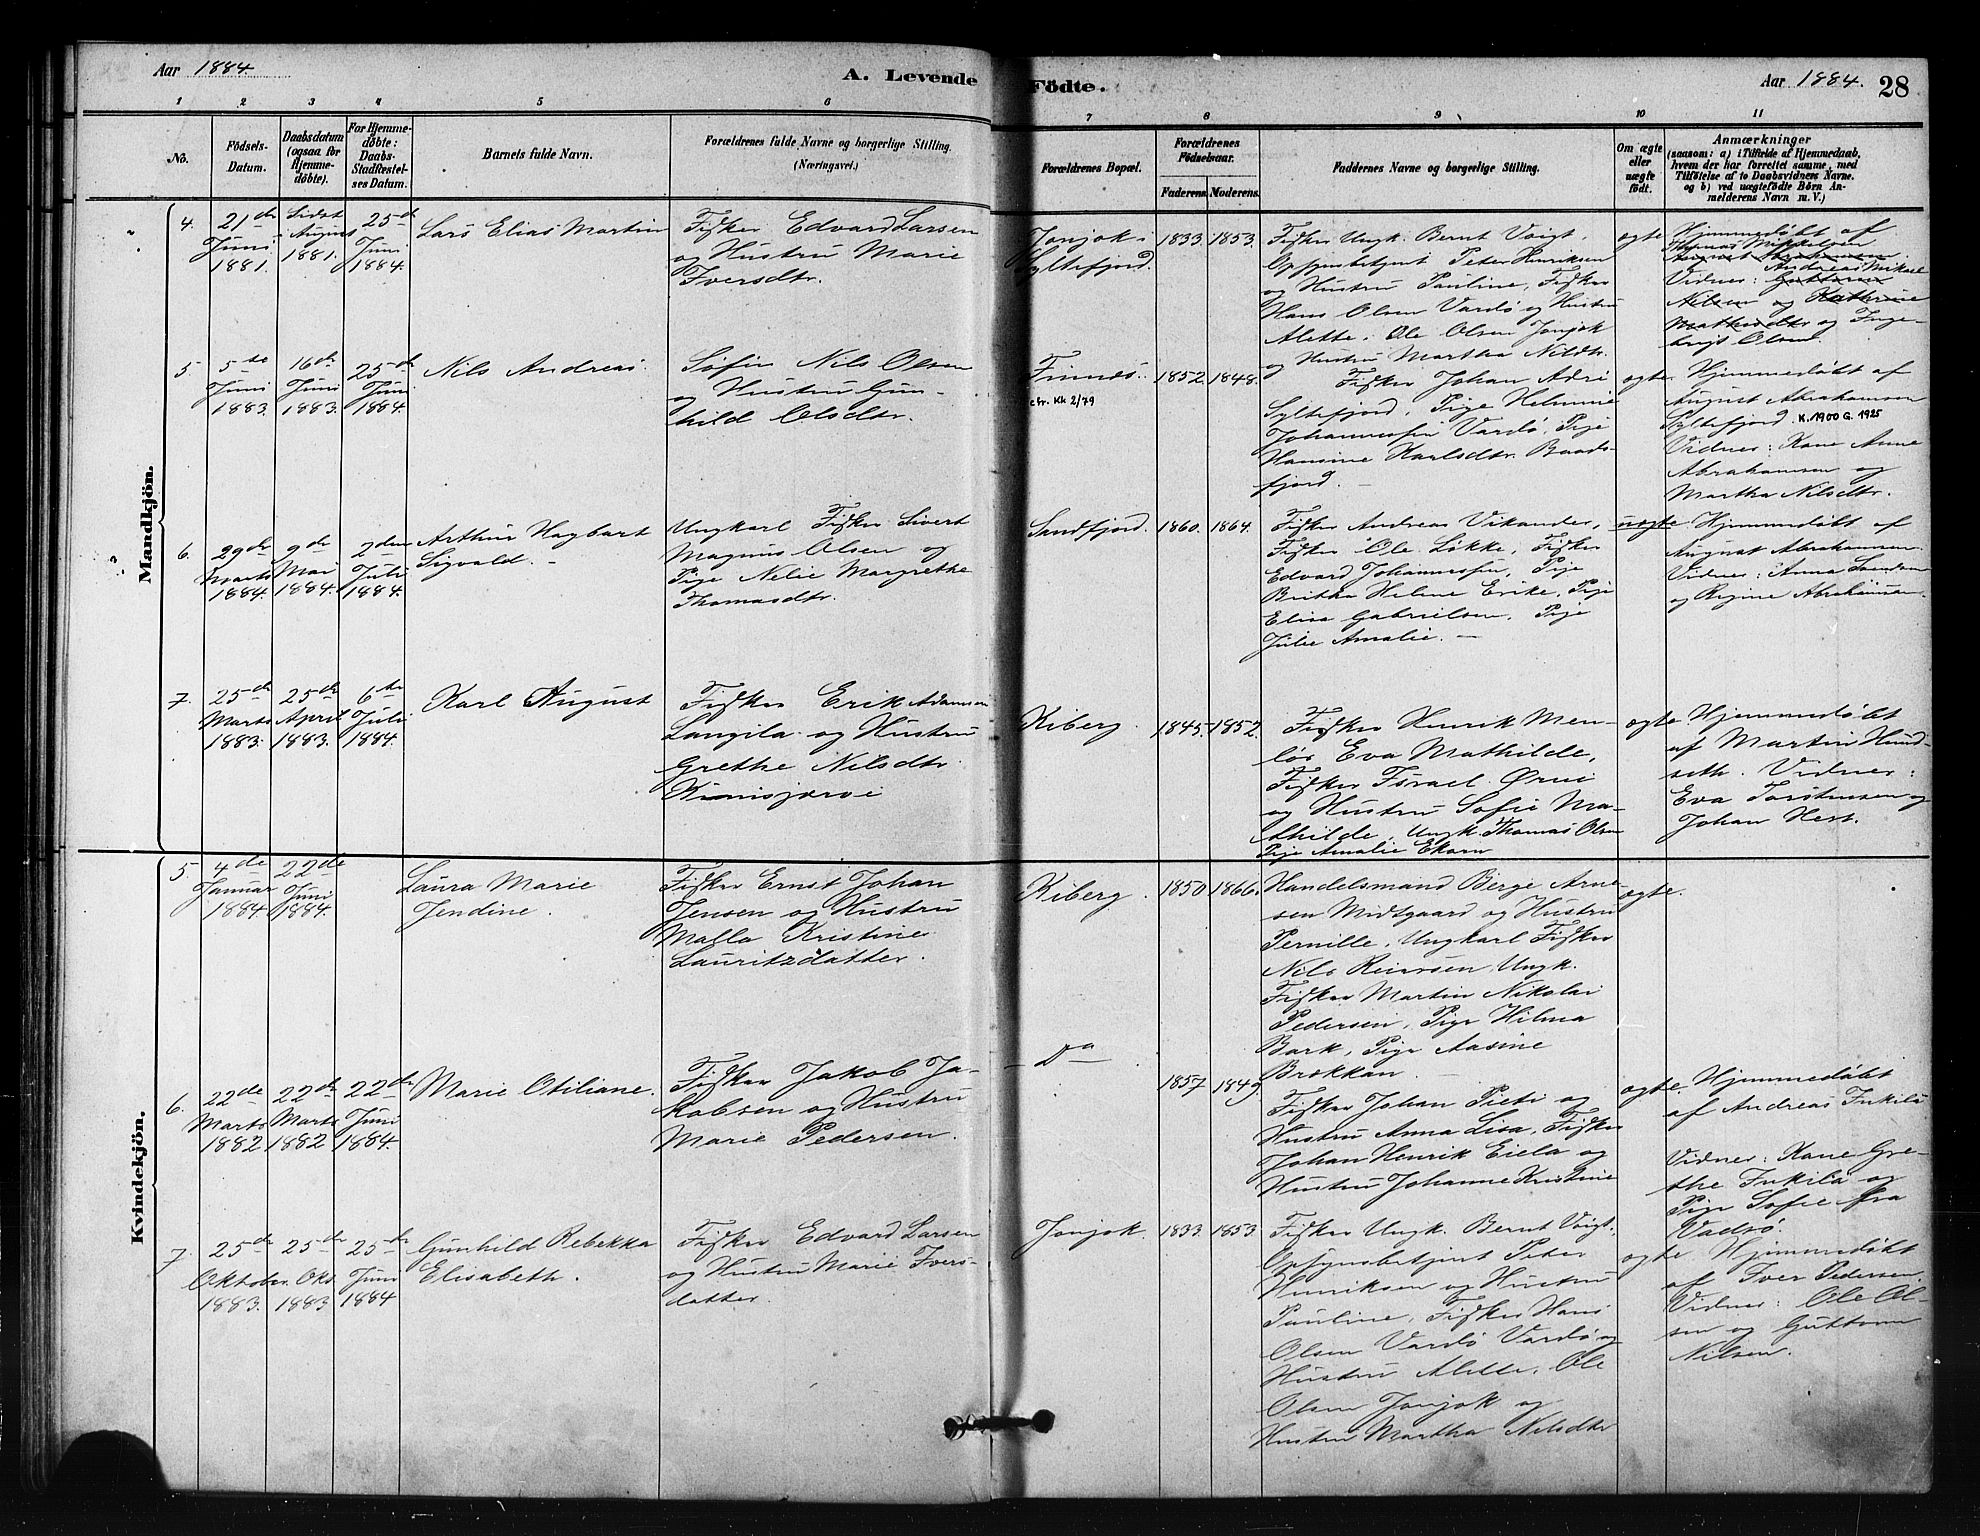 Aar 1884.
A. Levende
Födte.
Aar 1884.
28
1 2 3 4 5 6 7 8 9 10 11
No.
Födsels-
Datum.
Daabsdatum
(ogsaa for
Hjemme-
döbte).
For Hjemme-
döbte:
Daabs-
Stadfæstel-
ses Datum.
Barnets fulde Navn.
Forældrenes fulde Navne og borgerlige Stilling.
(Næringsvei.)
Forældrenes Bopæl.
Forældrenes
Födselsaar.
Faderens Moderens.
Faddernes Navne og borgerlige Stilling.
Om ægte
eller
uægte
födt.
Anmærkninger
(saasom: a) i Tilfælde af Hjemmedaab,
hvem der har forrettet samme, med
Tilföielse af to Daabsvidners Navne.
og b) ved uægtefödte Börn An-
melderens Navn m. V.)
Mandkjön.
4.
21de
Juni
1881.
Sidst
i August
1881.
25de
Juni
1884.
Lars Elias Martin
Fisker Edvard Larsen
og Hustru Marie
Iversdtr.
Jonjok i
Syltefjord.
1833. 1853.
Fisker Ungk. Bernt Voigt,
Opsynsbetjent Peter Henriksen
og Hustru Pauline, Fisker
Hans Olsen Vardö og Hustru
Alette, Ole Olsen Jonjok
og Hustru Martha Nilsdtr.
ægte
Hjemmedöbt af
Thomas Mikkelsen
Vidner: Andreas Mikael
Nilsen og Kathrine
og Inge-
brigt Olsen
5.
5te
Juni
1883.
16de
Juni
1883.
25de
Juni
1884.
Nils Andreas.
Søfin Nils Olsen
og Hustru Gun-
hild Olsdtr.
Finnes.
cfr. Kk 2/79
1852. 1848.
Fisker Johan Adri
Syltefjord, Pige Helmine
Johannesen Vardö, Pige
Hansine Karlsdtr. Baads-
fjord.
ægte
Hjemmedöbt af
August Abrahamsen
Syltefjord. K. 1900 G. 1925
Vidner: Kone Anne
Abrahamsen og
Martha Nilsdtr.
6.
29de
Marts
1884.
9de
Mai
1884.
2den
Juli
1884.
Arthur Hagbart
Sigvald.
Ungkarl Fisker Sivert
Magnus Olsen og
Pige Nelie Margrethe
Thomasdtr.
Sandfjord.
1860. 1864.
Fisker Andreas Vikander,
Fisker Ole Løkke, Fisker
Edvard Johannessen, Pige
Britha Helene Erike, Pige
Elisa Gabrielsen, Pige
Julie Amalie.
uægte
Hjemmedöbt af
August Abrahamsen.
Vidner: Anna
og Regine Abrahamsen.
7.
25de
Marts
1883.
25de
April
1883.
6te
Juli
1884.
Karl August
Fisker Erik Adamsen
Langila og Hustru
Grethe Nilsdtr.
Kiberg.
1845. 1852.
Fisker Henrik Men-
lös Eva Mathilde,
Fisker Israel Ørni
og Hustru Sofie Ma-
thilde, Ungk. Thomas Olsen
Pige Amalie Ekorn
ægte
Hjemmedöbt
af Martin Hund-
seth. Vidner:
Eva Torstensen og
Johan Hest.
Kvindekjön.
5.
4de
Januar
1884
22de
Juni
1884.
Laura Marie
Jendine.
Fisker Ernst Johan
Jensen og Hustru
Malla Kristine
Lauritzdatter.
Kiberg.
1850 1866.
Handelsmand Berge Arne-
sen Midtgaard og Hustru
Pernille, Ungkarl Fisker
Nils Reiersen, Ungk.
Fisker Martin Nikolai
Pedersen, Pige Hilma
Bark, Pige Aasine
Brokkan.
ægte.
6.
22de
Marts
1882
22de
Marts
1882
22de
Juni
1884.
Marie Otiliane.
Fisker Jakob Ja-
kobsen og Hustru
Marie Pedersen.
Do
1857 1849.
Fisker Johan Pieti og
Hustru Anna Lisa, Fisker
Johan Henrik Eiela og
Hustru Johanne Kristine
ægte.
Hjemmedöbt
af Andreas Inkila
Vidner: Kone Gre-
the Inkila og
Pige Sofie fra
Vadsö.
7.
25de
Oktober.
1883.
25de
Okt.
1883
25de
Juni
1884
Gunhild Rebekka
Elisabeth.
Fisker Edvard Larsen
og Hustru Marie Ivers-
datter.
Jonjok.
1833. 1853
Fisker Ungk. Bernt Voigt,
Opsynsbetjent Peter
Henriksen og Hustru
Pauline, Fisker Hans
Olsen Vardö Vardö og
Hustru Alette, Ole
Olsen Jonjok og
Hustru Martha Nilsdtr
ægte
Hjemmedöbt
af Iver Pedersen.
Vidner: Ole Ol-
sen og Guttorm
Nilsen.